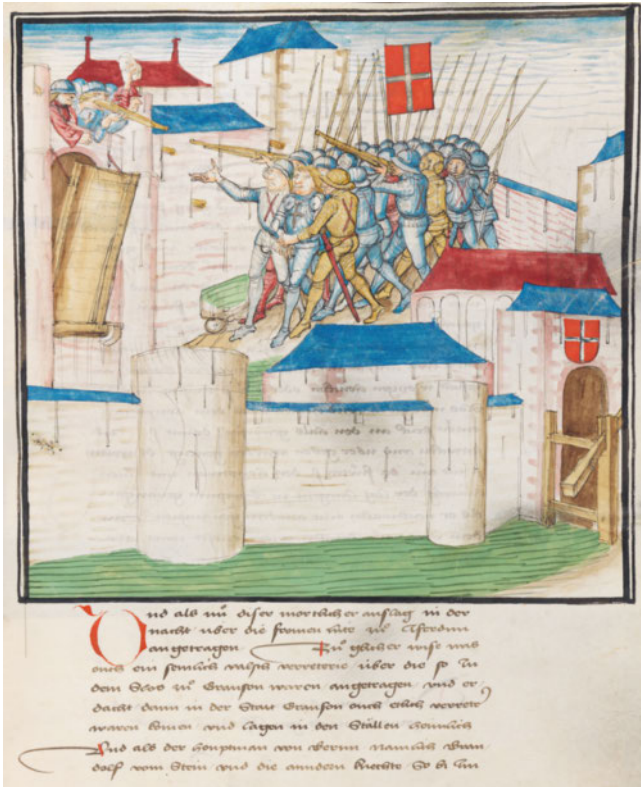 Und als nů diser mortlicher anslag in der
nacht uber die fromen lüte zů Yferdun
angetragen In glicher wise was
ouch ein semlich valsch verreterie über die so zu
dem Slos zů Granson waren angetragen und er
dacht dann in der Statt Granson ouch etlich verreter
waren komen und lagen in den Ställen heimlich
Und als der houptman von Bernn namlich Bran
dolf vom Stein und die anndern knechte So by Im